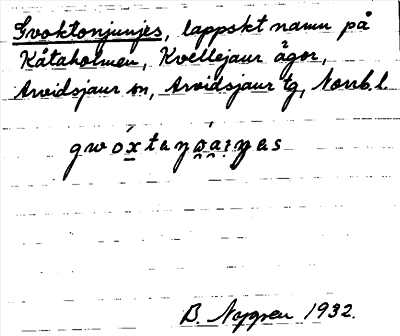 Gvoktonjunjes, lappskt namn på
Kåtaholmen, Kvellejaur ägor,
Arvidsjaur sn, Arvidsjaur tg, Norrb. l.
B. Nygren 1932.